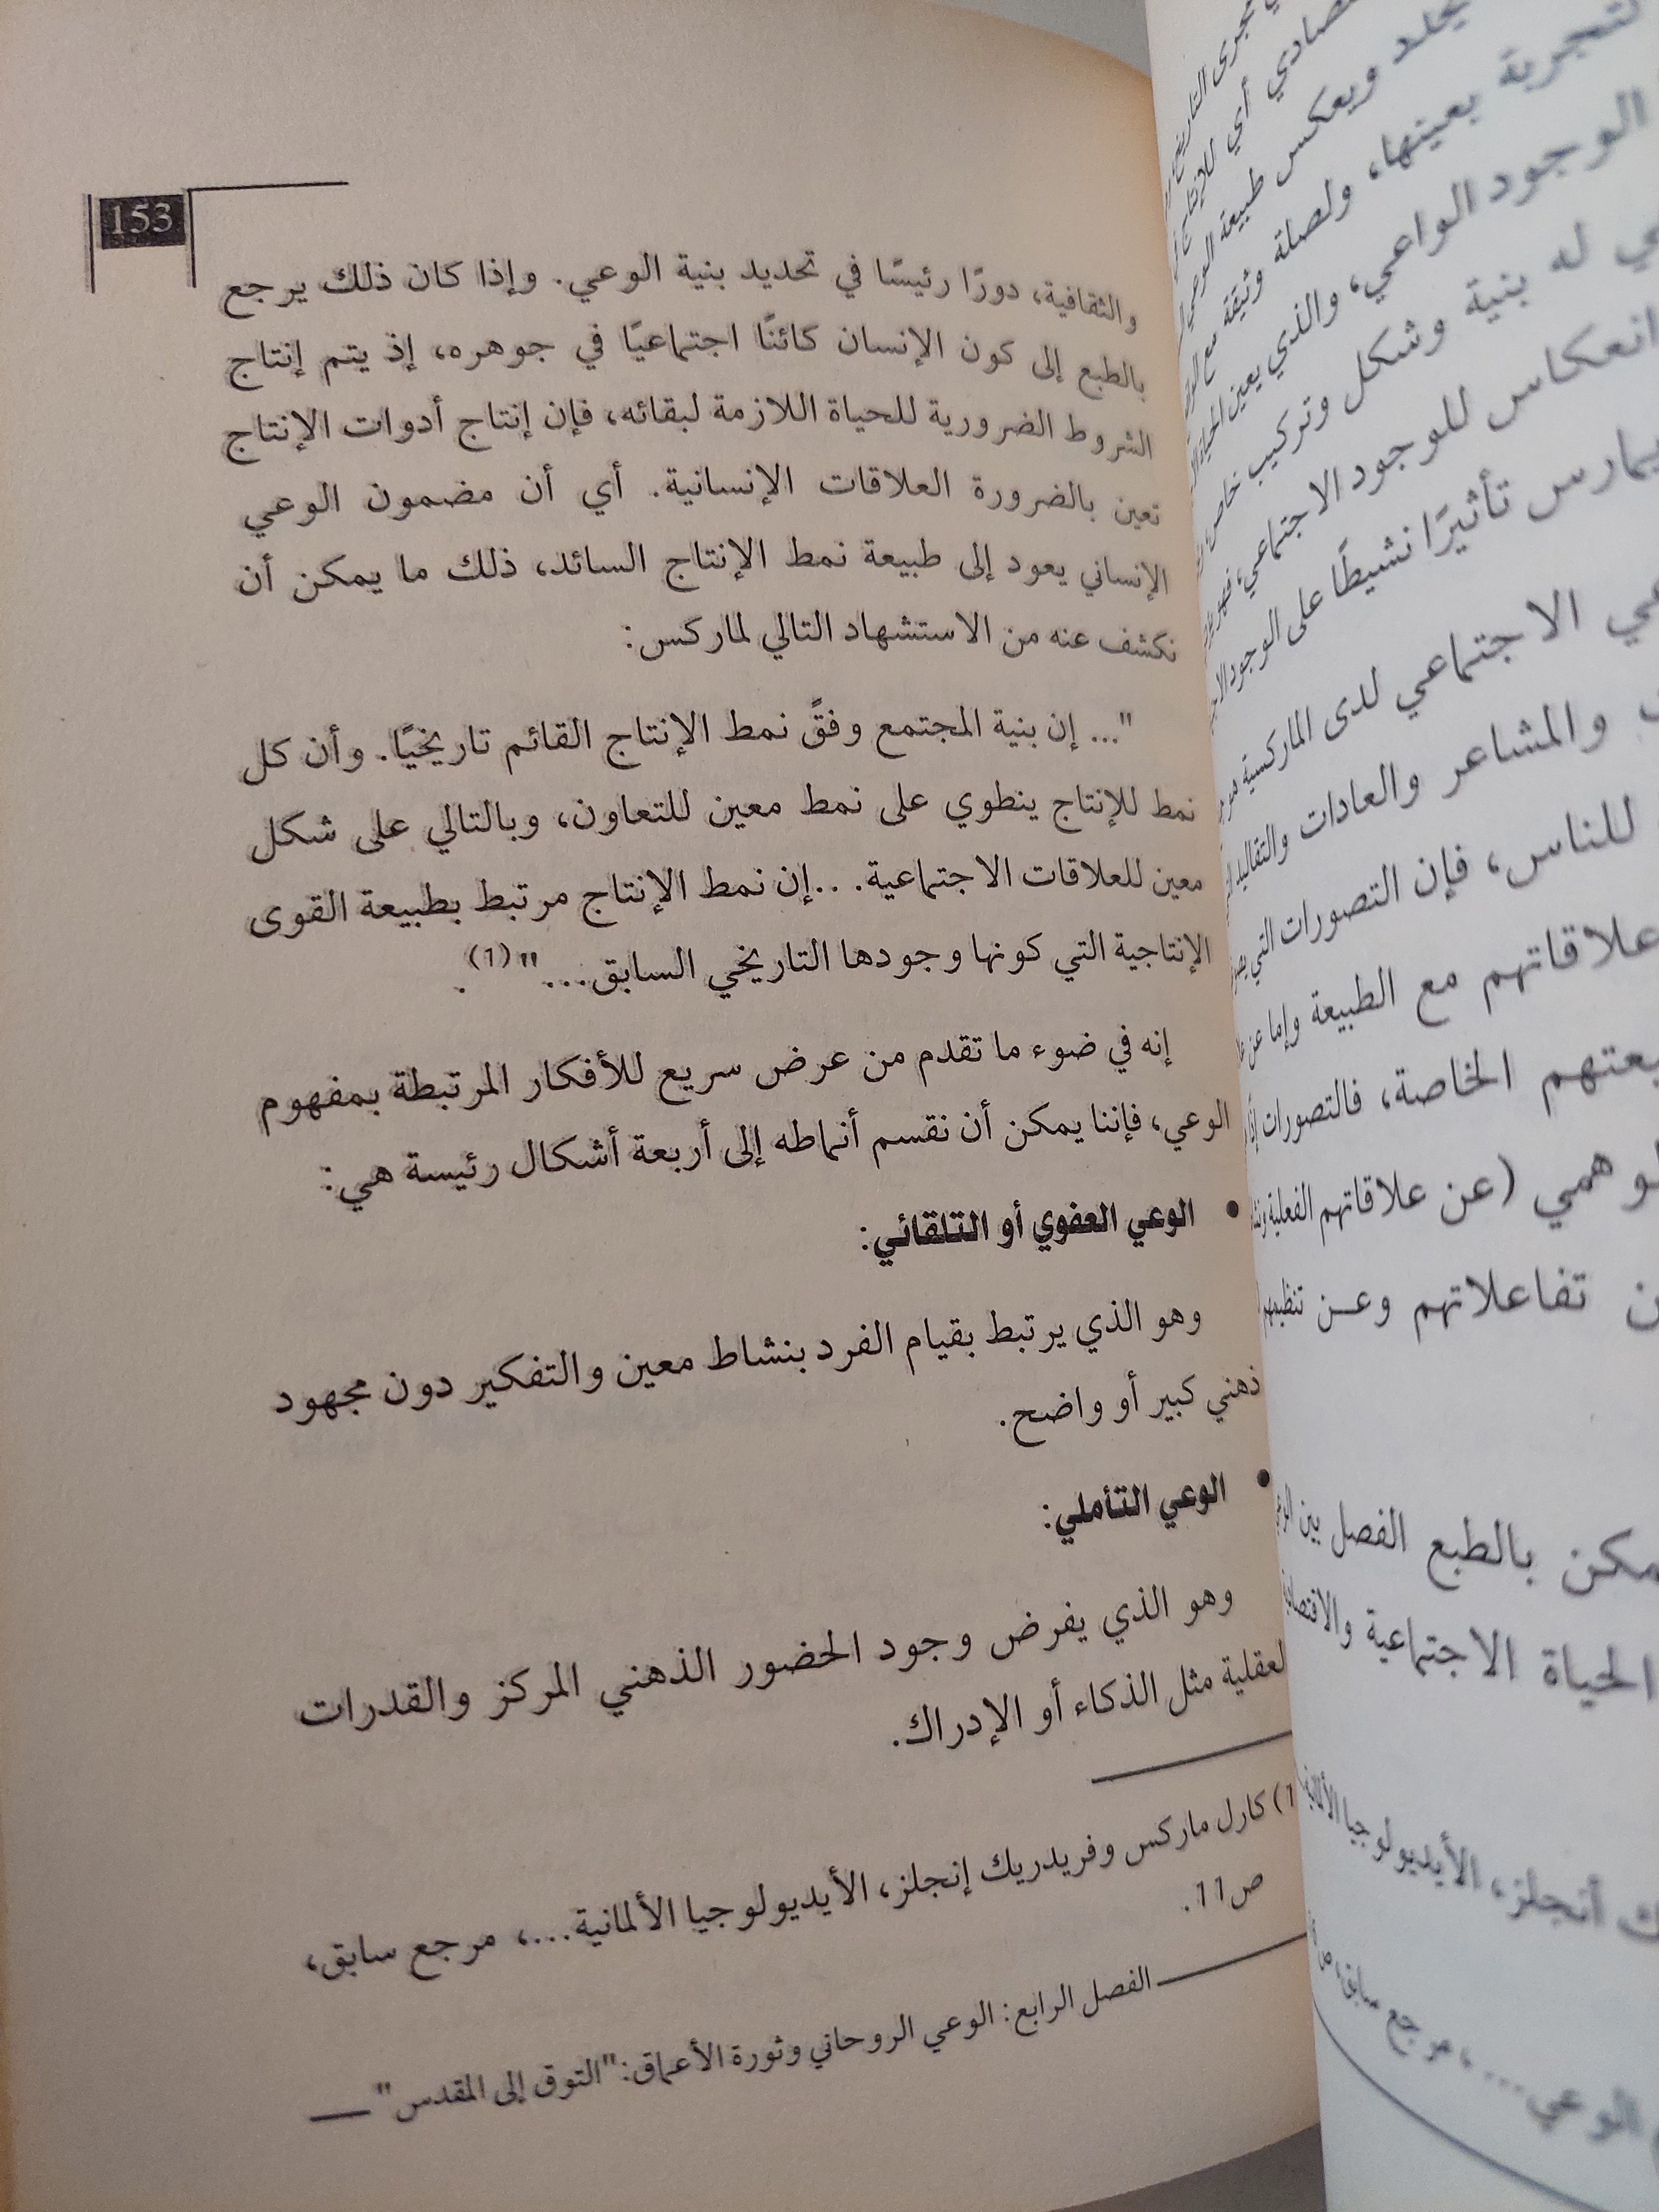 153
والثقافية، دورًا رئيسًا في تحديد بنية الوعي. وإذا كان ذلك يرجع
بالطبع إلى كون الإنسان كائنًا اجتماعيًا في جوهره، إذ يتم إنتاج
الشروط الضرورية للحياة اللازمة لبقائه، فإن إنتاج أدوات الإنتاج
تعين بالضرورة العلاقات الإنسانية. أي أن مضمون الوعي
الإنساني يعود إلى طبيعة نمط الإنتاج السائد، ذلك ما يمكن أن
نكشف عنه من الاستشهاد التالي لماركس:
"... إن بنية المجتمع وفقً نمط الإنتاج القائم تاريخيًا. وأن كل
نمط للإنتاج ينطوي على نمط معين للتعاون، وبالتالي على شكل
معين للعلاقات الاجتماعية. ..إن نمط الإنتاج مرتبط بطبيعة القوى
الإنتاجية التي كونها وجودها التاريخي السابق..." (1).
إنه في ضوء ما تقدم من عرض سريع للأفكار المرتبطة بمفهوم
الوعي، فإننا يمكن أن نقسم أنماطه إلى أربعة أشكال رئيسة هي:
• الوعي العفوي أو التلقائي:
وهو الذي يرتبط بقيام الفرد بنشاط معين والتفكير دون مجهود
ذهني كبير أو واضح.
• الوعي التأملي:
وهو الذي يفرض وجود الحضور الذهني المركز والقدرات
لعقلية مثل الذكاء أو الإدراك.
1) كارل ماركس وفريدريك إنجلز، الأيديولوجيا الألمانية...، مرجع سابق،
ص11.
الفصل الرابع: الوعي الروحاني وثورة الأعماق: "التوق إلى المقدس"
مجرى
أي للإنتاج
ويعكس طبيعة الوعي
لتجربة بعينها، ولصلة وثيقة مع
الوجود الواعي، والذي يعين الحياة
له بنية وشكل وتركيب خاص
انعكاس للوجود الاجتماعي، فهو
يمارس تأثيرًا نشيطًا على الوجود
الاجتماعي لدى الماركسية
والمشاعر والعادات والتقاليد
للناس، فإن التصورات التي
علاقاتهم مع الطبيعة وإما عن
الخاصة، فالتصورات
(عن علاقاتهم الفعلية
تفاعلاتهم وعن تنظيمهم
بالطبع الفصل بين
الحياة الاجتماعية
أنجلز، الأيديولوجيا
الوعي....، مرجع سابق، ص